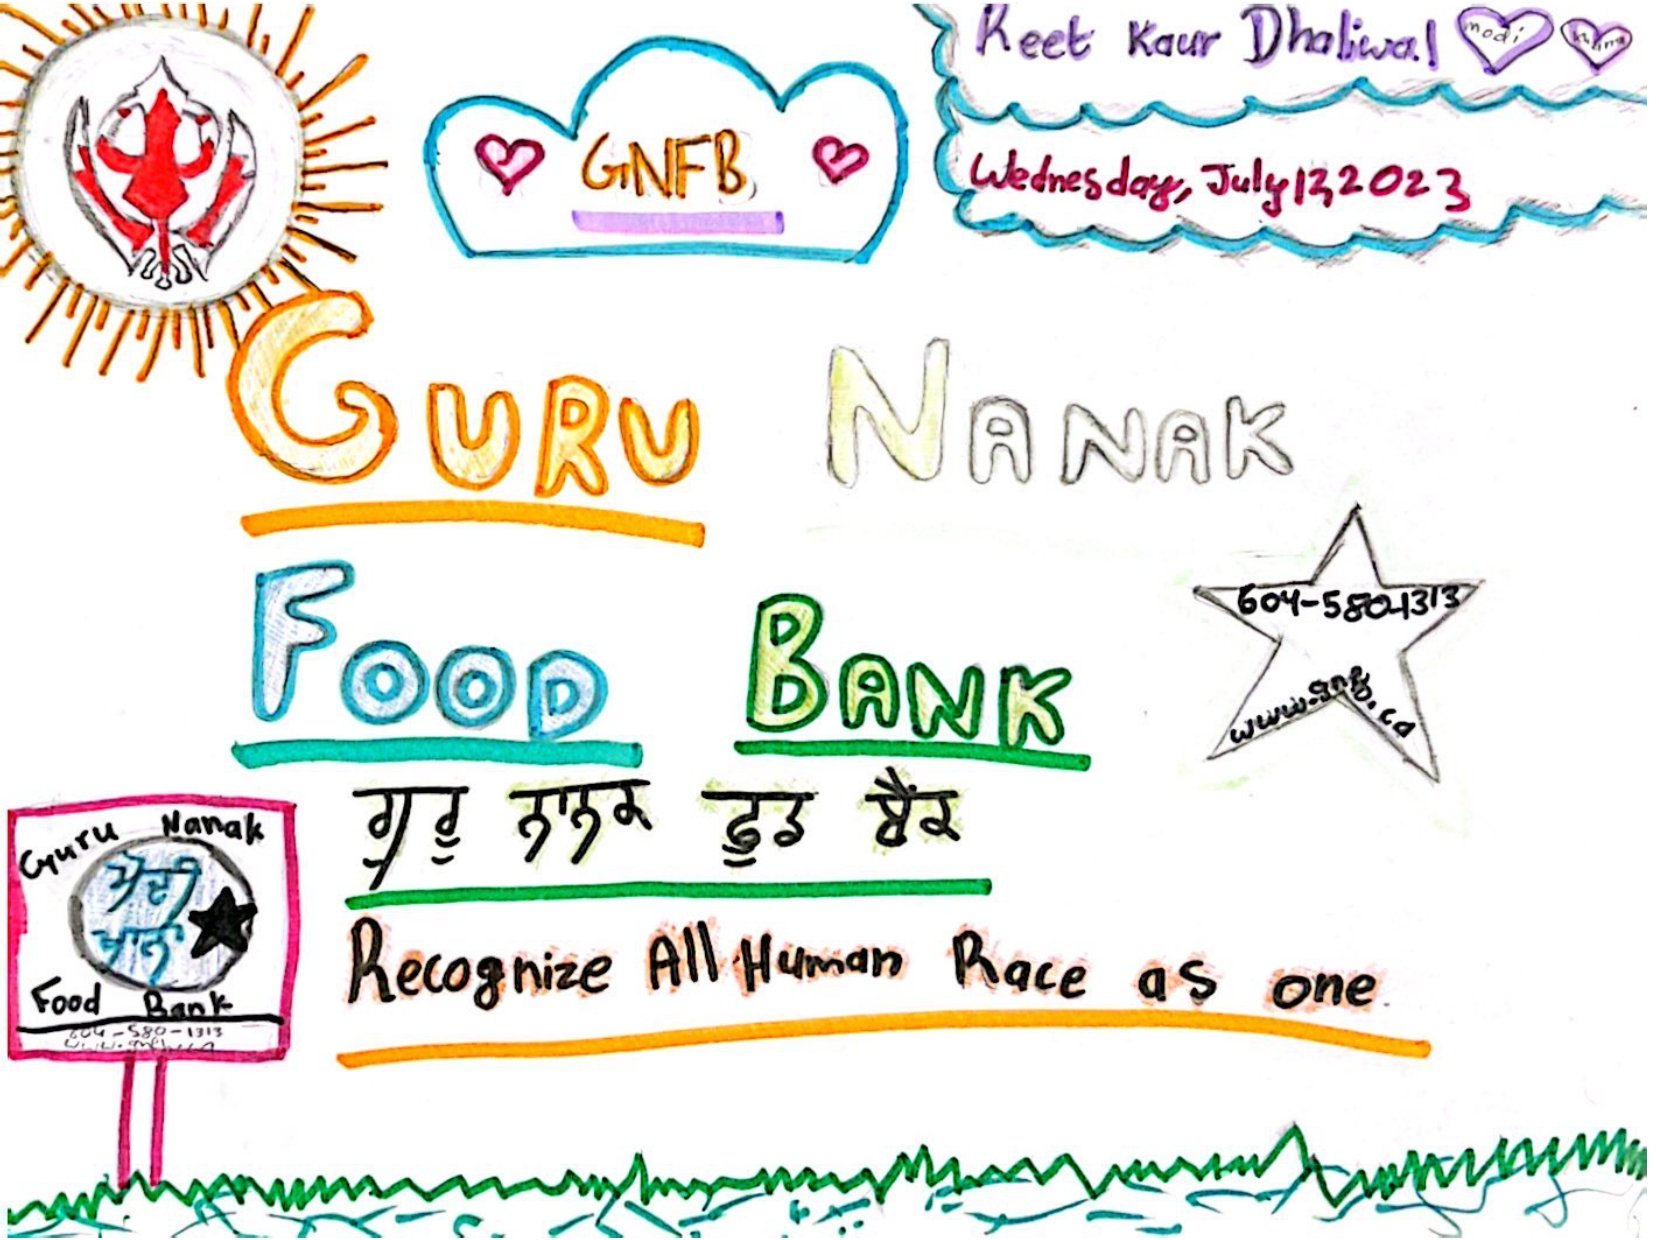 Reet Kaur Dhaliwal modi
GNFB
Wednesday, July 12, 2023
GURU NANAK
FOOD BANK
604-580-1313
www.gnfb.ca
ਗੁਰੂ ਨਾਨਕ ਫੂਡ ਬੈਂਕ
Recognize All Human Race as one
Guru Nanak
ਮੋਦੀ
ਖਾਨਾ
Food Bank
604-580-1313
www.gnfb.ca